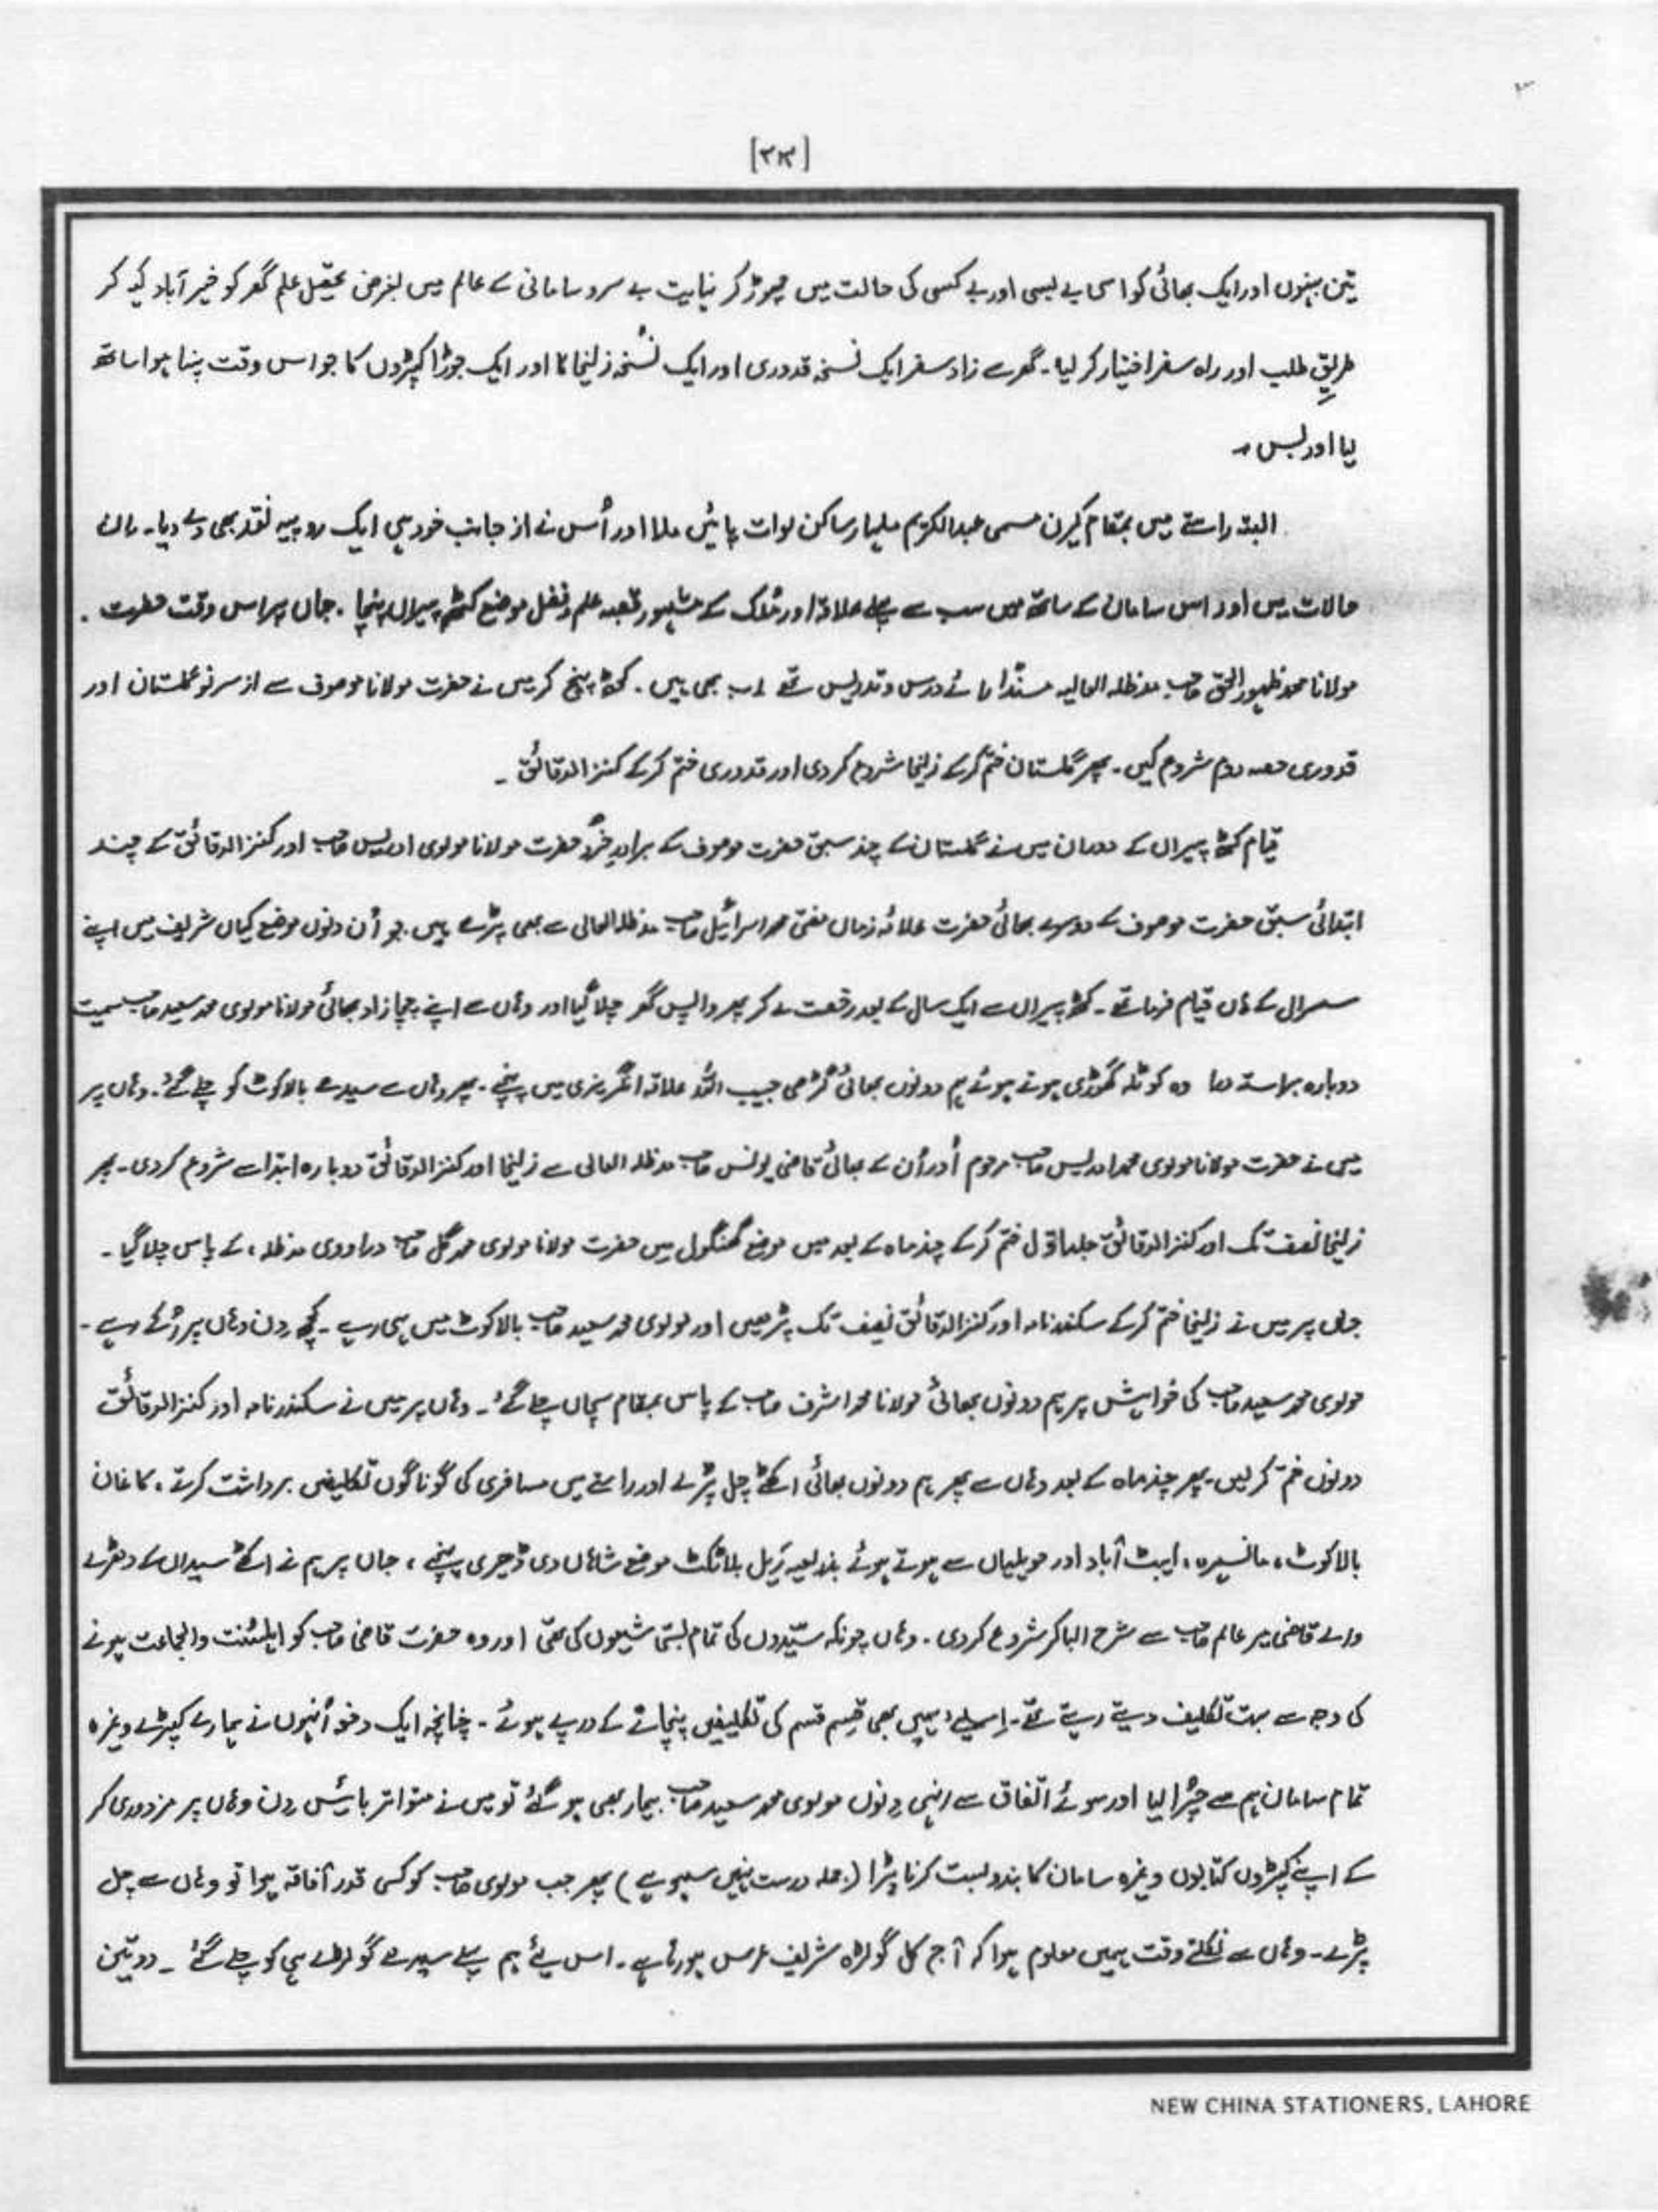 [۳۳]
تین بہنوں اور ایک بھائی کو اسی بے بسی اور بے کسی کی حالت میں چھوڑ کر نہایت بے سروسامانی کے عالم میں بغرض تحصیل علم گھر کو خیر آباد کہہ کر
طریقِ طلب اور راہ سفر اختیار کر لیا۔ گھر سے زاد سفر ایک نسخہ قدوری اور ایک نسخہ زلیخا کا اور ایک جوڑا کپڑوں کا جو اس وقت پہنا ہوا ساتھ
لیا اور بس ۔
البتہ راستے میں بمقام کیرن مسمی عبدالکریم ملیار ساکن لوات پائیں ملا اور اُس نے از جانب خود ہی ایک روپیہ نقد بھی دے دیا۔ ان
حالات میں اور اس سامان کے ساتھ میں سب سے پہلے علاقہ اور مُلک کے مشہور قصبہ علم و فضل موضع کٹھہ پیراں پہنچا ۔ جہاں پر اس وقت حضرت
مولانا محمد ظہور الحق صاحب مدظلہ العالیہ مسند آرائے درس و تدریس تھے اب بھی ہیں ۔ کٹھ پہنچ کر میں نے حضرت مولانا موصوف سے از سرنو گلستان اور
قدوری حصہ دوم شروع کیں ۔ پھر گلستان ختم کرکے زلیخا شروع کردی اور قدوری ختم کرکے کنزالدقائق ۔
قیام کٹھ پیراں کے دوران میں نے گلستان کے چند سبق حضرت موصوف کے برادرِ خُرد حضرت مولانا مولوی ادریس صاحب اور کنزالدقائق کے چند
ابتدائی سبق حضرت موصوف کے دوسرے بھائی حضرت علامہ زماں مفتی محمد اسرائیل صاحب مدظلہ العالی سے بھی پڑھے ہیں ۔ جو اُن دنوں موضع کیاں شریف میں اپنے
سسرال کے ہاں قیام فرما تھے ۔ کٹھ پیراں سے ایک سال کے بعد رخصت لے کر پھر واپس گھر چلا گیا اور وہاں سے اپنے چچا زاد بھائی مولانا مولوی محمد سعید صاحب سمیت
دوبارہ براستہ وہ کوٹلہ گھوڑی ہوتے ہوئے ہم دونوں بھائی گڑھی حبیب اللہ علاقہ انگریزی میں پہنچے ۔ پھر وہاں سے سیدھے بالاکوٹ کو چلے گئے ۔ وہاں پر
میں نے حضرت مولانا مولوی محمد ادریس صاحب مرحوم اور اُن کے بھائی قاضی یونس صاحب مدظلہ العالی سے زلیخا اور کنزالدقائق دوبارہ ابتدا سے شروع کردی ۔ پھر
زلیخا نصف تک اور کنزالدقائق جلد اوّل ختم کرکے چند ماہ کے بعد میں موضع گھنگول میں حضرت مولانا مولوی محمد گل صاحب دراووی مدظلہ ، کے پاس چلا گیا ۔
جہاں پر میں نے زلیخا ختم کرکے سکندرنامہ اور کنزالدقائق نصف تک پڑھیں اور مولوی محمد سعید صاحب بالاکوٹ میں ہی رہے ۔ کچھ دن وہاں پر رُکے رہے ۔
مولوی محمد سعید صاحب کی خواہش پر ہم دونوں بھائی مولانا محمد اشرف صاحب کے پاس بمقام سچاں چلے گئے ۔ وہاں پر میں نے سکندرنامہ اور کنزالدقائق
دونوں ختم کر لیں ۔ پھر چند ماہ کے بعد وہاں سے پھر ہم دونوں بھائی اکٹھے چل پڑے اور راستے میں مسافری کی گوناگوں تکلیفیں برداشت کرتے ، کاغان
بالاکوٹ ، مانسہرہ ، ایبٹ آباد اور حویلیاں سے ہوتے ہوئے بذریعہ ریل بلاٹکٹ موضع شاہاں دی ڈھیری پہنچے ، جہاں پر ہم نے اکٹھے سیداں کے دھڑے
والے قاضی پیر عالم صاحب سے شرح الیاس شروع کردی ۔ وہاں چونکہ سیّدوں کی تمام بستی شیعوں کی تھی اور وہ حضرت قاضی صاحب کو اہلسُنت والجماعت ہونے
کی وجہ سے بہت تکلیف دیتے رہتے تھے ۔ اِسلئے ہمیں بھی قِسم قسم کی تکلیفیں پہنچانے کے درپے ہوئے ۔ چنانچہ ایک دفعہ اُنہوں نے ہمارے کپڑے وغیرہ
تمام سامان ہم سے چُرا لیا اور سوئے اتفاق سے انہی دِنوں مولوی محمد سعید صاحب بیمار بھی ہو گئے تو میں نے متواتر بائیس دن وہاں پر مزدوری کر
کے اپنے کپڑوں کتابوں وغیرہ سامان کا بندوبست کرنا پڑا (جملہ درست نہیں سہو ہے) پھر جب مولوی صاحب کو کسی قدر آفاقہ ہوا تو وہاں سے چل
پڑے ۔ وہاں سے نکلتے وقت ہمیں معلوم ہوا کہ آج کل گولڑہ شریف عرس ہورہا ہے ۔ اس لئے ہم پہلے سیدھے گولڑے ہی کو چلے گئے ۔ دو تین
NEW CHINA STATIONERS, LAHORE